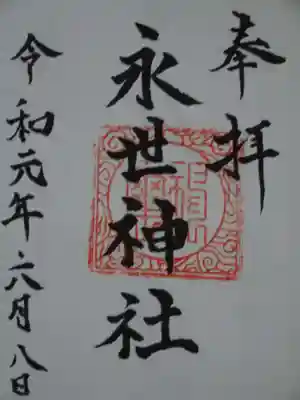 奉拝
永世神社
令和元年六月八日